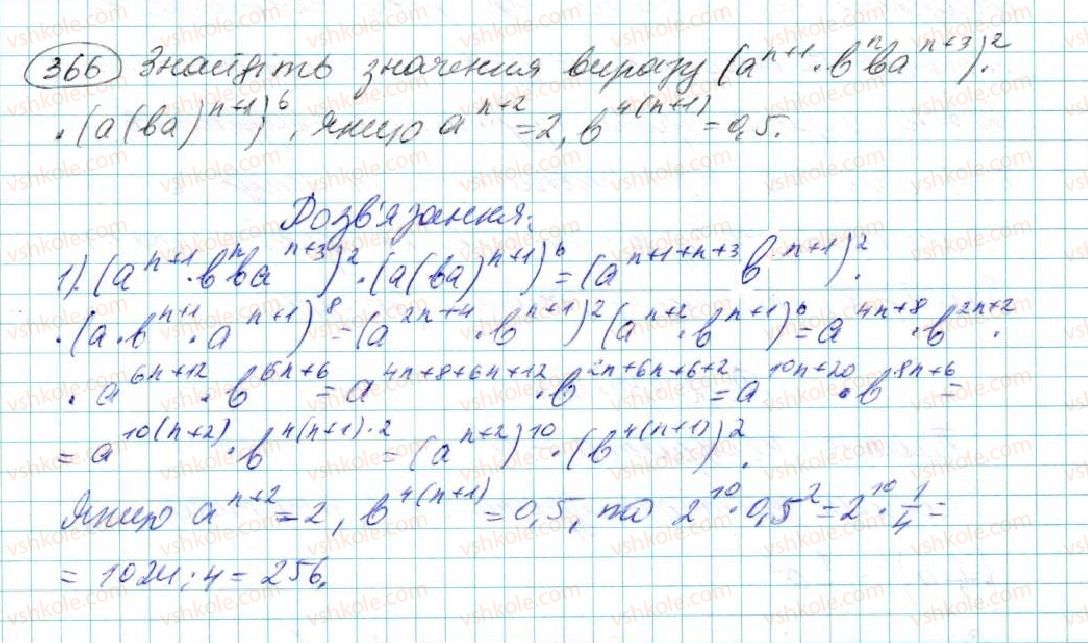 366 Знайдіть значення виразу (a^{n+1}·b^n ba^{n+3})^2·
·(a(ba)^{n+1})^6, якщо a^{n+2}=2, b^{4(n+1)}=0,5.
Розв'язання:
1). (a^{n+1}·b^n ba^{n+3})^2·(a(ba)^{n+1})^6=(a^{n+1+n+3} b^{n+1})^2·
·(a·b^{n+1}·a^{n+1})^8=(a^{2n+4}·b^{n+1})^2(a^{n+2}·b^{n+1})^6=a^{4n+8}·b^{2n+2}·
·a^{6n+12}·b^{6n+6}=a^{4n+8+6n+12}·b^{2n+6n+6+2}=a^{10n+20}·b^{8n+6}=
=a^{10(n+2)}·b^{4(n+1)·2}=(a^{n+2})^{10}·(b^{4(n+1)})^2.
Якщо a^{n+2}=2, b^{4(n+1)}=0,5, то 2^{10}·0,5^2=2^{10}·1/4=
=1024:4=256.